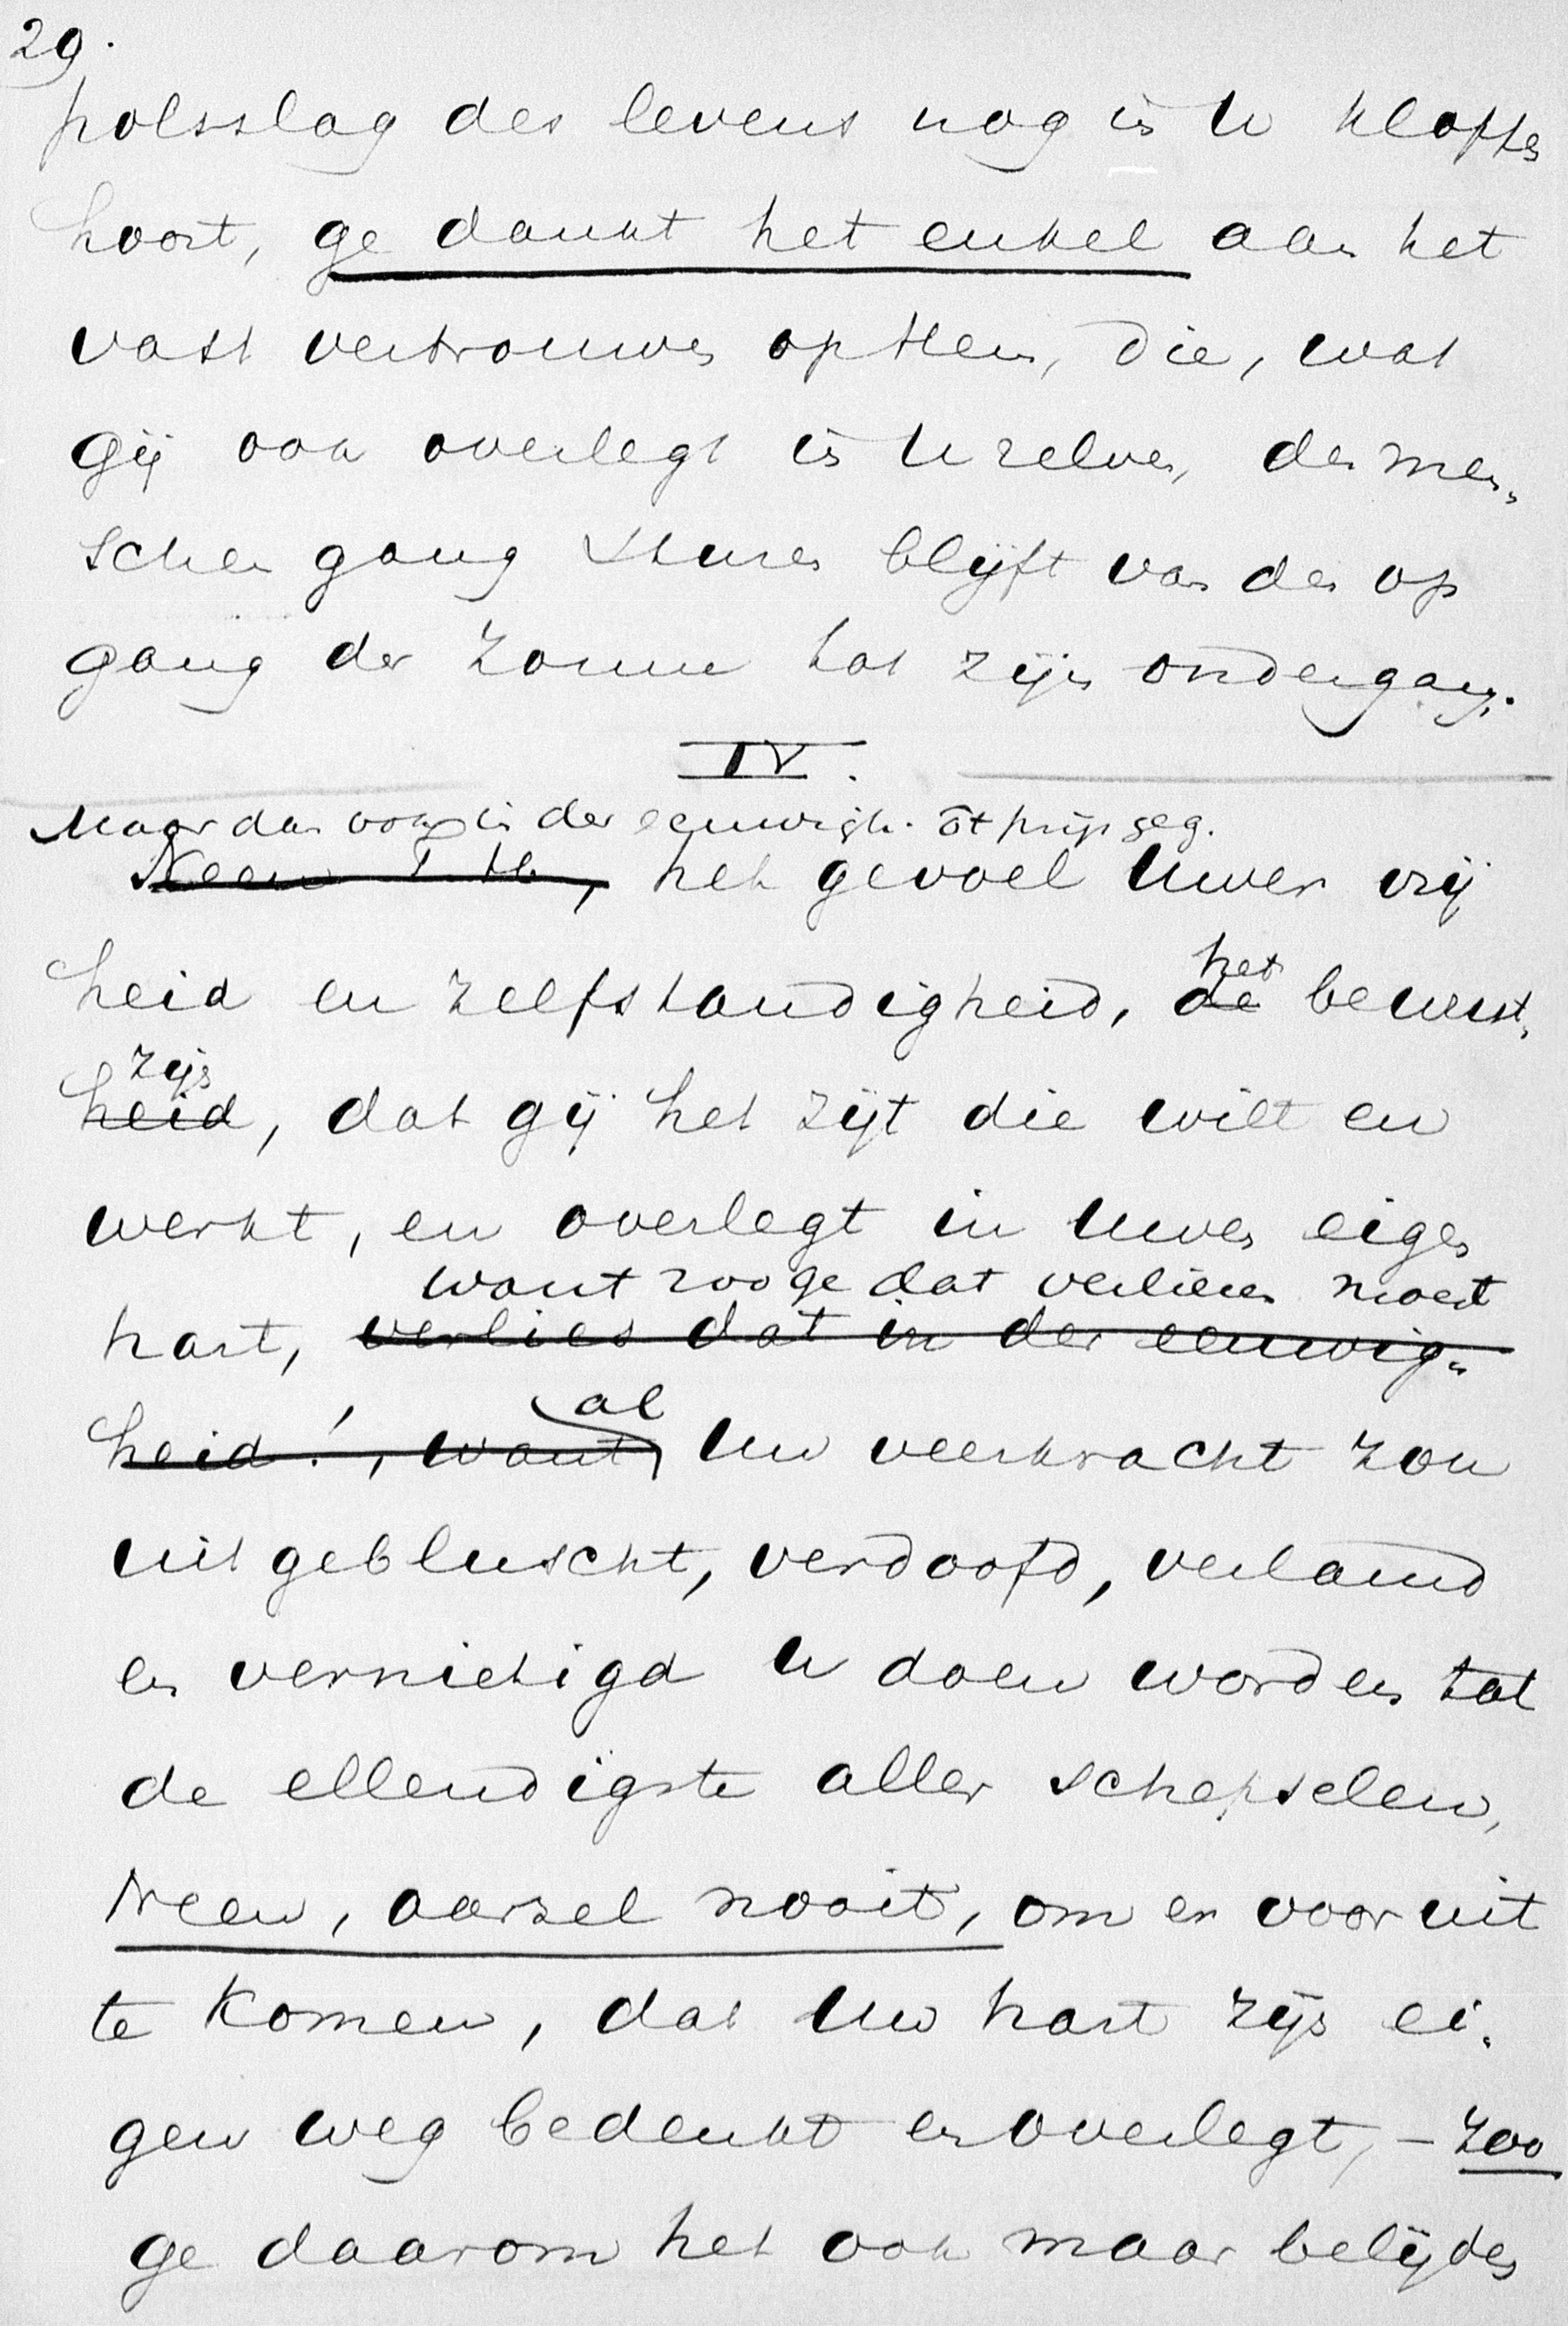 29.
polsslag des levens nog in U kloppen
hoort, ge dankt het enkel aan het
vast vertrouwen op Hem, die, wat
gij ook overlegt in U zelven, der men„
schen gang sturen blijft van den op
gang der zonne tot zijn ondergang.
IV.
Maar dan ook in der eeuwigh. ót prijs geg.
Neen T. H., het gevoel Uwer vrij
heid en zelfstandigheid, de het bewust„
zijn
heid, dat gij het zijt die wilt en
werkt, en overlegt in Uwen eigen
want zoo ge dat verliezen moest
hart, verlies dat in der eeuwig„
al
heid!, want, Uw veerkracht zou
uitgebluscht, verdoofd, verlamd
en vernietigd U doen worden tot
de ellendigste aller schepselen,
Neen, aarzel nooit, om er voor uit
te komen, dat Uw hart zijn ei„
gen weg bedenkt en overlegt, – zoo
ge daarom het ook maar belijden